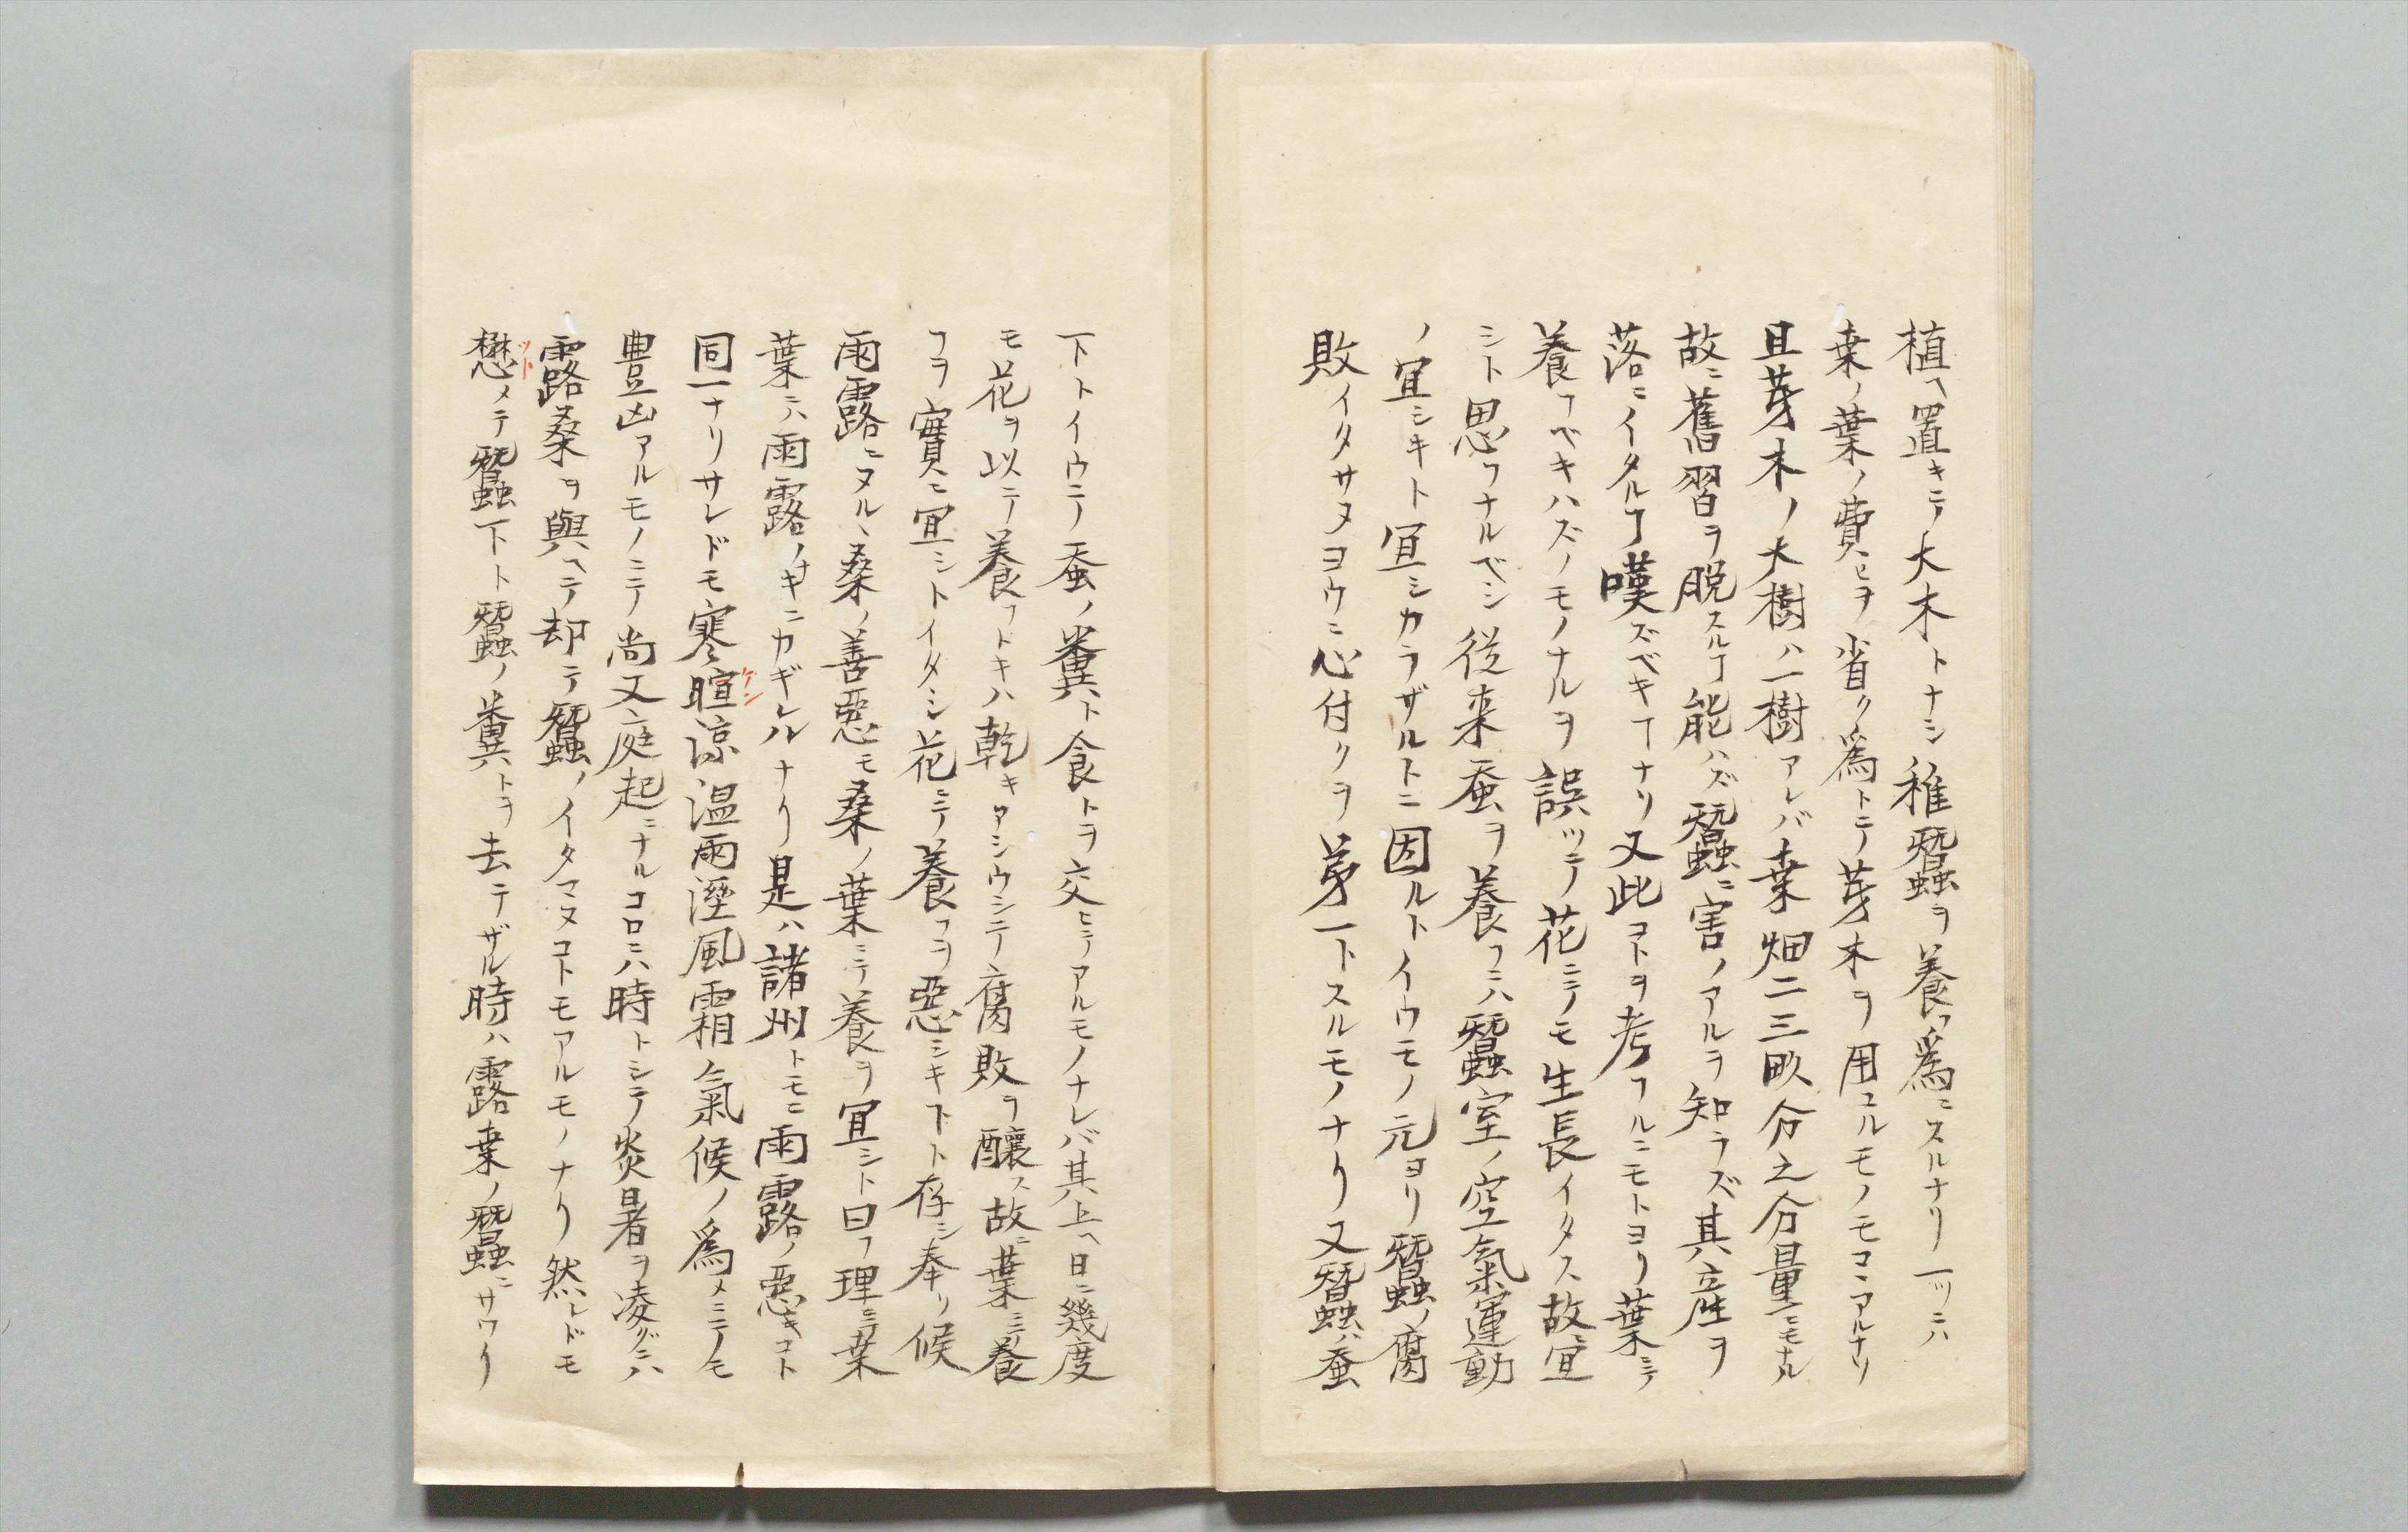 植ヘ置キテ大木トナシ稚蠶ヲ養フ爲ニスルナリ一ッニハ
桒ノ葉ノ費ヒヲ省ク爲トテ芽木ヲ用ユルモノモコヽアルナリ
且芽木ノ大樹ハ一樹アレバ桒畑二三畝分之分量ニモナル
故ニ舊習ヲ脱スルヿ能ハズ蠶ニ害ノアルヲ知ラズ其産ヲ
落ニイタルヿ嘆ズベキヿナリ又此コトヲ考フルニモトヨリ葉ニテ
養フベキハズノモノナルヲ誤ッテ花ニテモ生長イタス故ニ宜
シト思フナルベシ従来蚕ヲ養フニハ蠶室ノ空氣運動
ノ宜シキト宜シカラザルトニ因ルトイウモノ元ヨリ蠶ノ腐
敗イタサヌヨウニ心付クヲ第一トスルモノナリ又蠶ハ蚕
下トイウテ蚕ノ糞ト食トヲ交ヒテアルモノナレバ其上ヘ日ニ幾度
モ花ヲ以テ養フトキハ乾キアシウシテ腐敗ヲ釀ス故ニ葉ニテ養
フヲ實ニ宜シトイタシ花ニテ養フヲ惡シキヿト存シ奉リ候
雨露ニヌルヽ桑ノ善惡モ桑ノ葉ニテ養ヲ宜シト曰フ理ニテ葉
葉ニハ雨露ノナキニカギレルナリ是ハ諸州トモニ雨露ノ惡キコト
同一ナリサレドモ寒暄ケン涼温雨溼風霜ノ氣候ノ爲メニテモ
豊凶アルモノニテ尚又庭起ニナルコロニハ時トシテ炎暑ヲ凌グニハ
露桑ヲ與ヘテ却テ蠶ノイタマヌコトモアルモノナリ然レドモ
懋ットメテ蠶下ト蠶ノ糞トヲ去テザル時ハ露桒ノ蠶ニサワリ